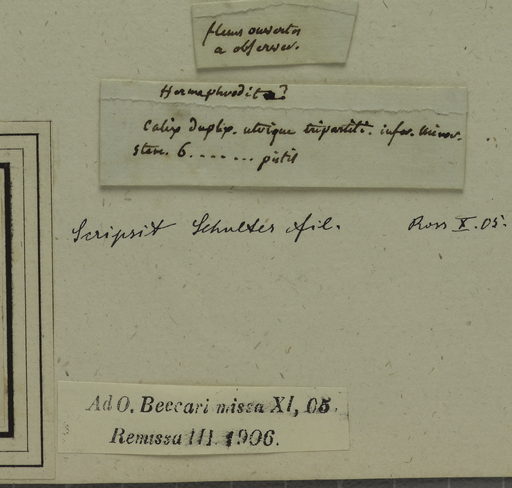 fleurs ouvertes
a observer.
Hermaphrodite?
Calix duplex. utrique tripartiti. infer. minor.
stam. 6. ....... pistil
Scripsit Schultes fil. Ross X. 05.
Ad O. Beccari missa XI, 05.
Remissa III. 1906.